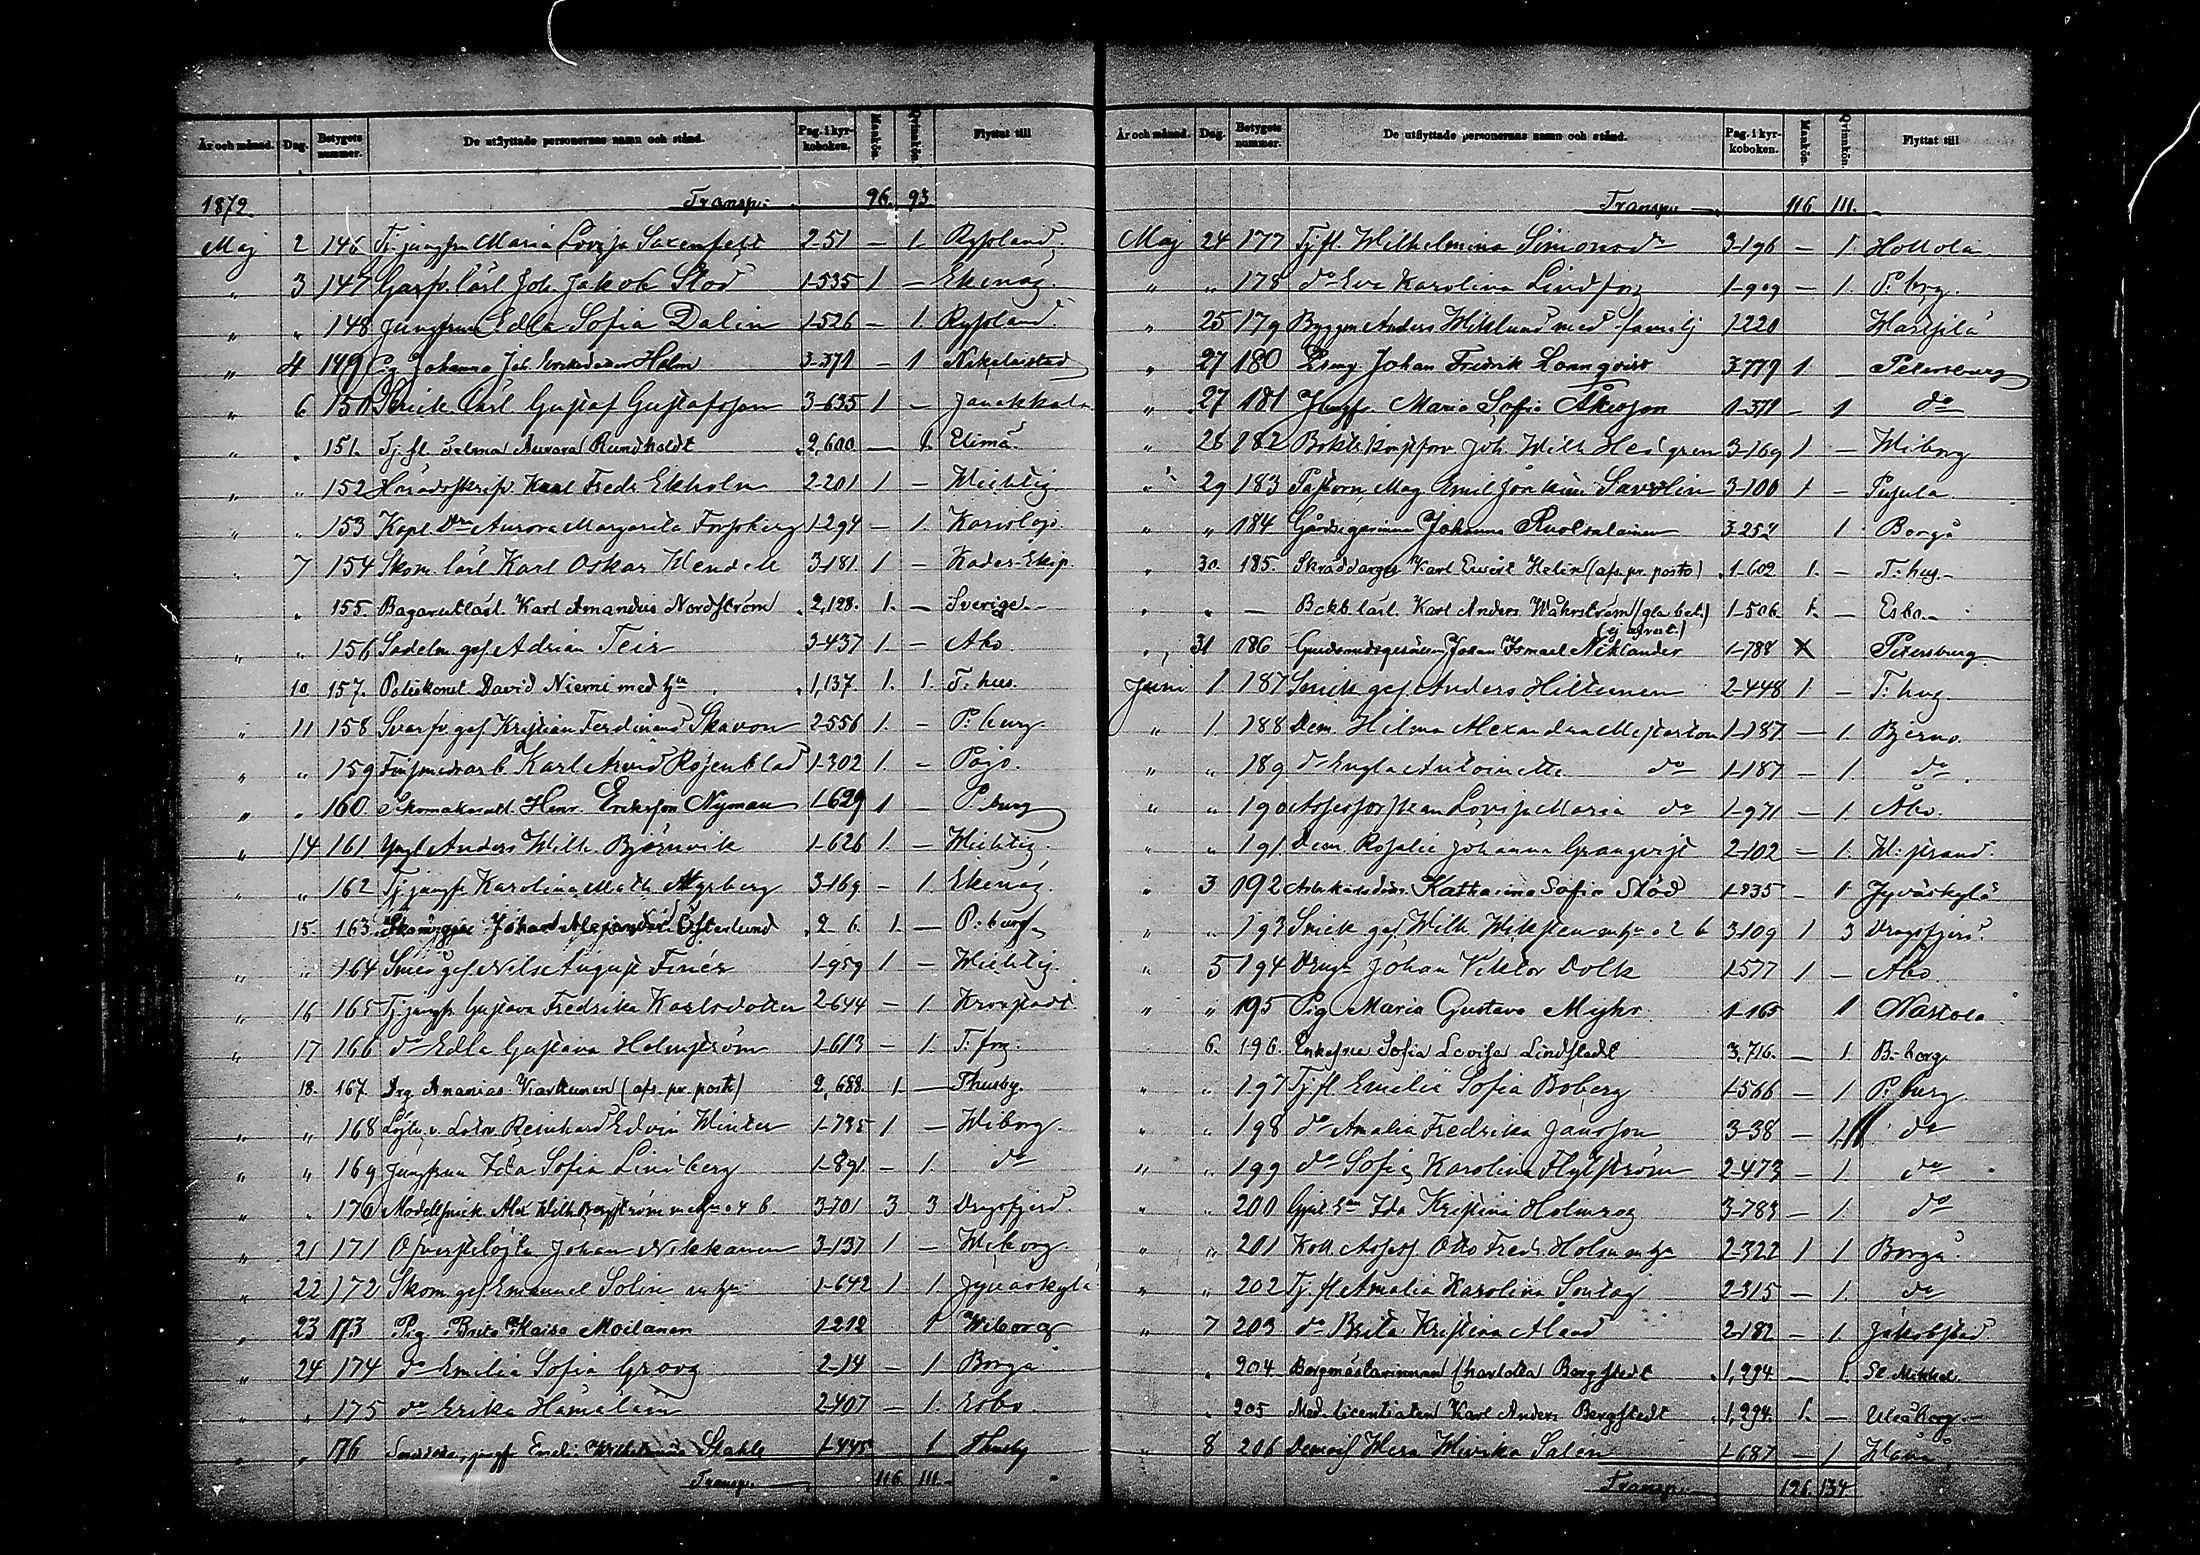 År och månad. Dag. Betygets nummer. De utflyttade personernas namn och stånd. Pag. i kyrkoboken. Mankön. Qvinkön. Flyttat till
1872. Transp. 96. 93
Maj 2 146 Tj. jungfru Maria Lovisa Saxenfelt 2-51 — 1. Ryssland
" 3 147 Garfv. lärl. Joh. Jakob Stod 1-535 1 — Ekenäs.
" " 148 Jungfrun Edla Sofia Dalin 1-526 — 1. Ryssland
" 4 149 Pig. Johanna Joh. Holm 3-371 — 1 Nikolaistad
" 6 150 Snick. lärl. Gustaf Gustafsson 3-635 1 — Janakkala
" " 151. Tj. fl. Selma Aurora Rundholdt 2,600 — 1. Elimä
" " 152 Häradsskrifv. Karl Fredr. Ekholm 2-201 1 — Wichtis
" " 153 Kapl. Aurora Margareta Forssberg 1-294 — 1. Karislojo
" 7 154 Skom. lärl. Karl Oskar Wendell 3-181. 1 — Kadex-Eksp.
" " 155 Bagarelärl. Karl Amandus Nordström 2,128. 1. — Sverige.
" " 156 Sadelm. ges. Adrian Teir 3-437 1. — Åbo.
10 157. Poliskonst. David Niemi med hu 1,137. 1. 1. T: hus.
" 11 158 Svarfv. ges. Kristian Ferdinand Skavon 2-556 1. — P: burg
" " 159 Finsmedsarb. Karl Arvid Rosenblad 1-302 1. — Pojo.
" " 160. Skomakarelärl. Henr. Eriksson Nyman 1-629 1 — P. burg
" 14 161 Yngl. Anders Wilh. Björnvik 1-626 1. — Wichtis.
" " 162 Tj. jungfr. Karolina Math. Myrberg 3-169 — 1. Ekenäs.
15. 163. Johan Alexander Österlund 2 6. 1. — P: burg
" " 164 Smed ges. Nils August Finér 1-959 1 — Wichtis
" 16 165 Tj. jungfr. Gustava Fredrika Karlsdotter 2-644 — 1. Kronstadt.
" 17 166 do Edla Gustava Holmström 1-613 — 1. T: fors.
18. 167. Drg. Ananias Kartunen (afs. pr. post) 2,688. 1. — Thusby.
" " 168 Löjtn. v. Lotsv. Reinhard Edvin Winter 1-735 1 — Wiborg.
" " 169 Jungfrun Ida Sofia Lindberg 1-891. — 1. do
" " 170 Modellsnick. Alex. Wilh. Bergström m. hu o 4 b. 3-701 3 3 Dragsfjerd.
" 21 171 Öfverstelöjtn. Johan Nikkanen 3-137 1 — Wiborg.
" 22 172 Skom. ges. Emanuel Solin m. hu. 1-642 1 1 Jyväskylä
" 23 173 Pig. Brita Kaisa Moilanen 1-212 1 Wiborg
" 24 174 do Emilia Sofia Grovg 2-14 — 1 Borgå
" " 175 do Erika Hämäläin 2-407 — 1. Esbo.
" " 176 jungf. Emeli Wilhelmina Stahle 1-445 1 Thusby
Transp. 116. 111.
År och månad. Dag. Betygets nummer. De utflyttade personernas namn och stånd. Pag. i kyrkoboken. Mankön. Qvinkön. Flyttat till
Transp. 116 111.
Maj 24 177 Tj. fl. Wilhelmina Simonsdr 3-196 — 1. Hollola
" " 178 do Eva Karolina Lindfors 1-909 — 1. P. brg.
" 25 179 Byggm. Anders Wiklund med familj 1-220 Warkjila
" 27 180 Johan Fredrik Lönnqvist 3-779 1. — Petersburg
" 27 181 Jungfr. Maria Sofia Åkesson 1-371 — 1 do
" 28 182 Joh. Wilh. Hedgren 3-169 1 — Wiborg
" 29 183 Pastorn, Mag. Emil Joakim Savolin 3-100 1 — Pusula
" " 184 Gårdsegarinnan Johanna Ruotsalainen 3-252 1. Borgå
" 30. 185. Skräddarges. Karl Evert Helin (afs. pr. posto) 1-602 1. — T: hus.
" " — Bokb. lärl. Karl Anders Wåhrström (gla bet.) 1-506. 1. — Esbo.
(ej afrest.)
" 31 186 Guldsmedsgesällen Johan Ismael Niklander 1-788 X Petersburg
Juni 1 187 Snick. ges. Anders Hiltunen 2-448 1 — T: hus
" 1. 188 Dem. Hilma Alexandra Mesterton 1-187 — 1. Bjerno.
" " 189 do Engla Antoinette do 1-187 — 1. do
" " 190 Assessorskan Lovisa Maria do 1-971 — 1 Åbo.
" " 191 Dem. Rosalie Johanna Granqvist 2-102 — 1. W: strand.
" 3 192 Katharina Sofia Stöd 1-835 — 1. Jyväskylä
" " 193 Snick. ges. Wilh. Wiksten m hu o 2 b 3-109 1 3 Dragsfjerd.
" 5 194 Drng. Johan Viktor Dolk 1-577 1. — Åbo.
" " 195 Pig. Maria Gustava Myhr 1-165 1 Nastola
6. 196. Enkefru Sofia Lovisa Lindstedt 3,716. — 1. B: borg.
" " 197 Tj. fl. Emelie Sofia Boberg 1-566 — 1 P: burg
" " 198 do Amalia Fredrika Jansson 3-38 — 1. do
" " 199 do Sofia Karolina Flyktström 2-473 — 1 do
" " 200 Ida Kristina Holmroos 3-783 — 1. do
" " 201 Koll. Assess. Otto Fredr. Holm m hu 2-322 1 1. Borgå.
" " 202 Tj. fl. Amalia Karolina Sontag 2-315 — 1. do
" 7 203 do Brita Kristina Åland 2-182 — 1. Jakobstad
" 204. Borgmästarinnan Charlotta Bergstedt 1,294 — 1. St. Mikkel.
" 205 Med. licentiaten Karl Anders Bergstedt 1,294. 1. — Uleåborg.
" 8 206 Demois. Wera Wivika Salin 1-687 — 1
Transp. 126. 134